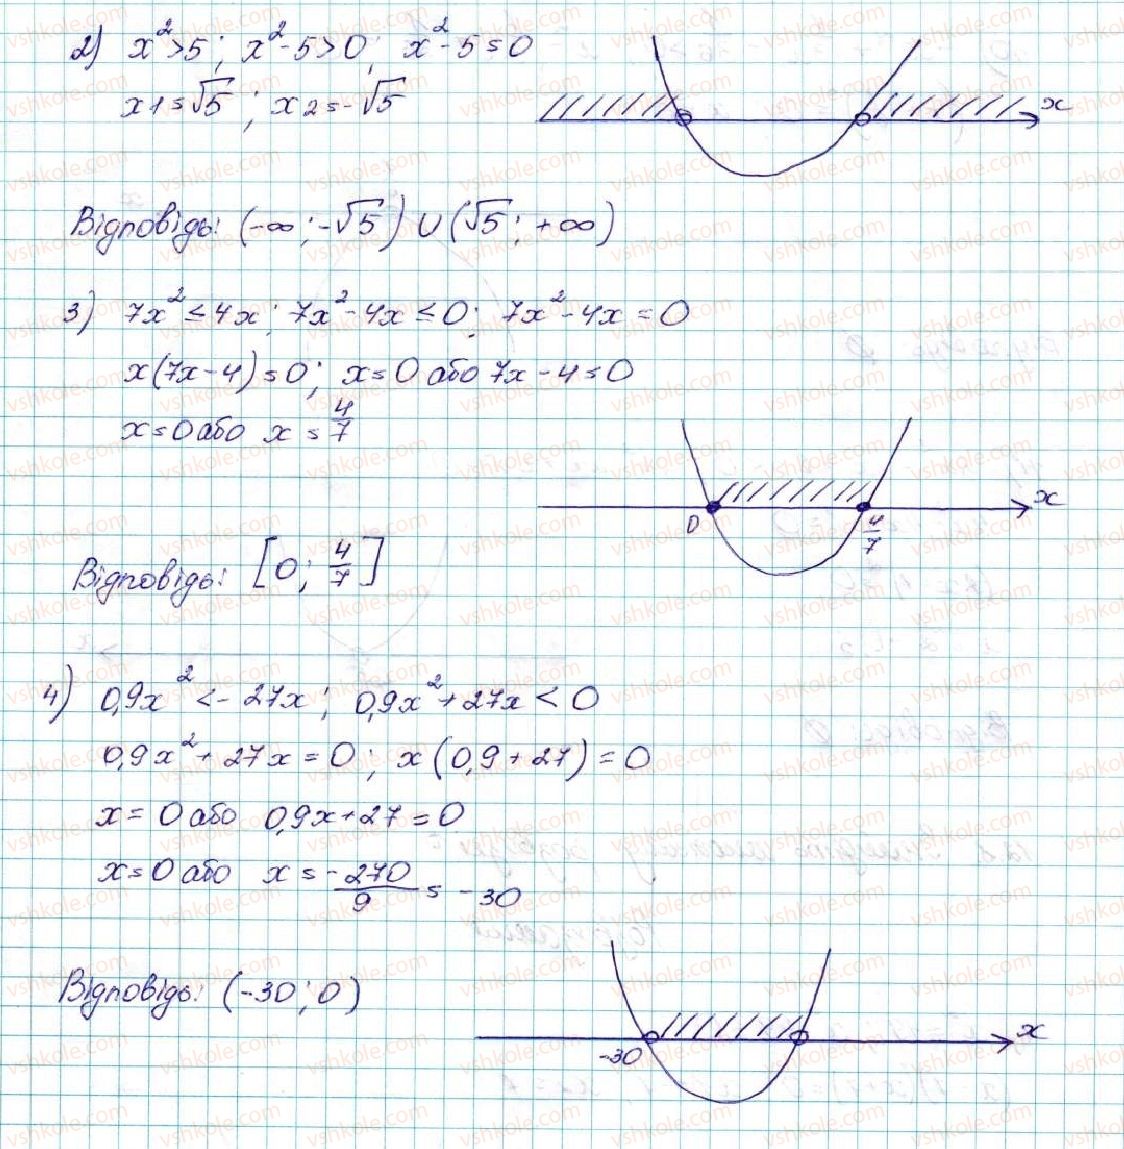 2) x²>5; x²-5>0; x²-5=0
x1=√5; x2=-√5
x
Відповідь: (-∞;-√5) ∪ (√5; +∞)
3) 7x²≤4x; 7x²-4x≤0; 7x²-4x=0
x(7x-4)=0; x=0 або 7x-4=0
x=0 або x=4/7
x
0 4/7
Відповідь: [0; 4/7]
4) 0,9x²<-27x; 0,9x²+27x<0
0,9x²+27x=0; x(0,9+27)=0
x=0 або 0,9x+27=0
x=0 або x=-270/9=-30
Відповідь: (-30;0)
x
-30